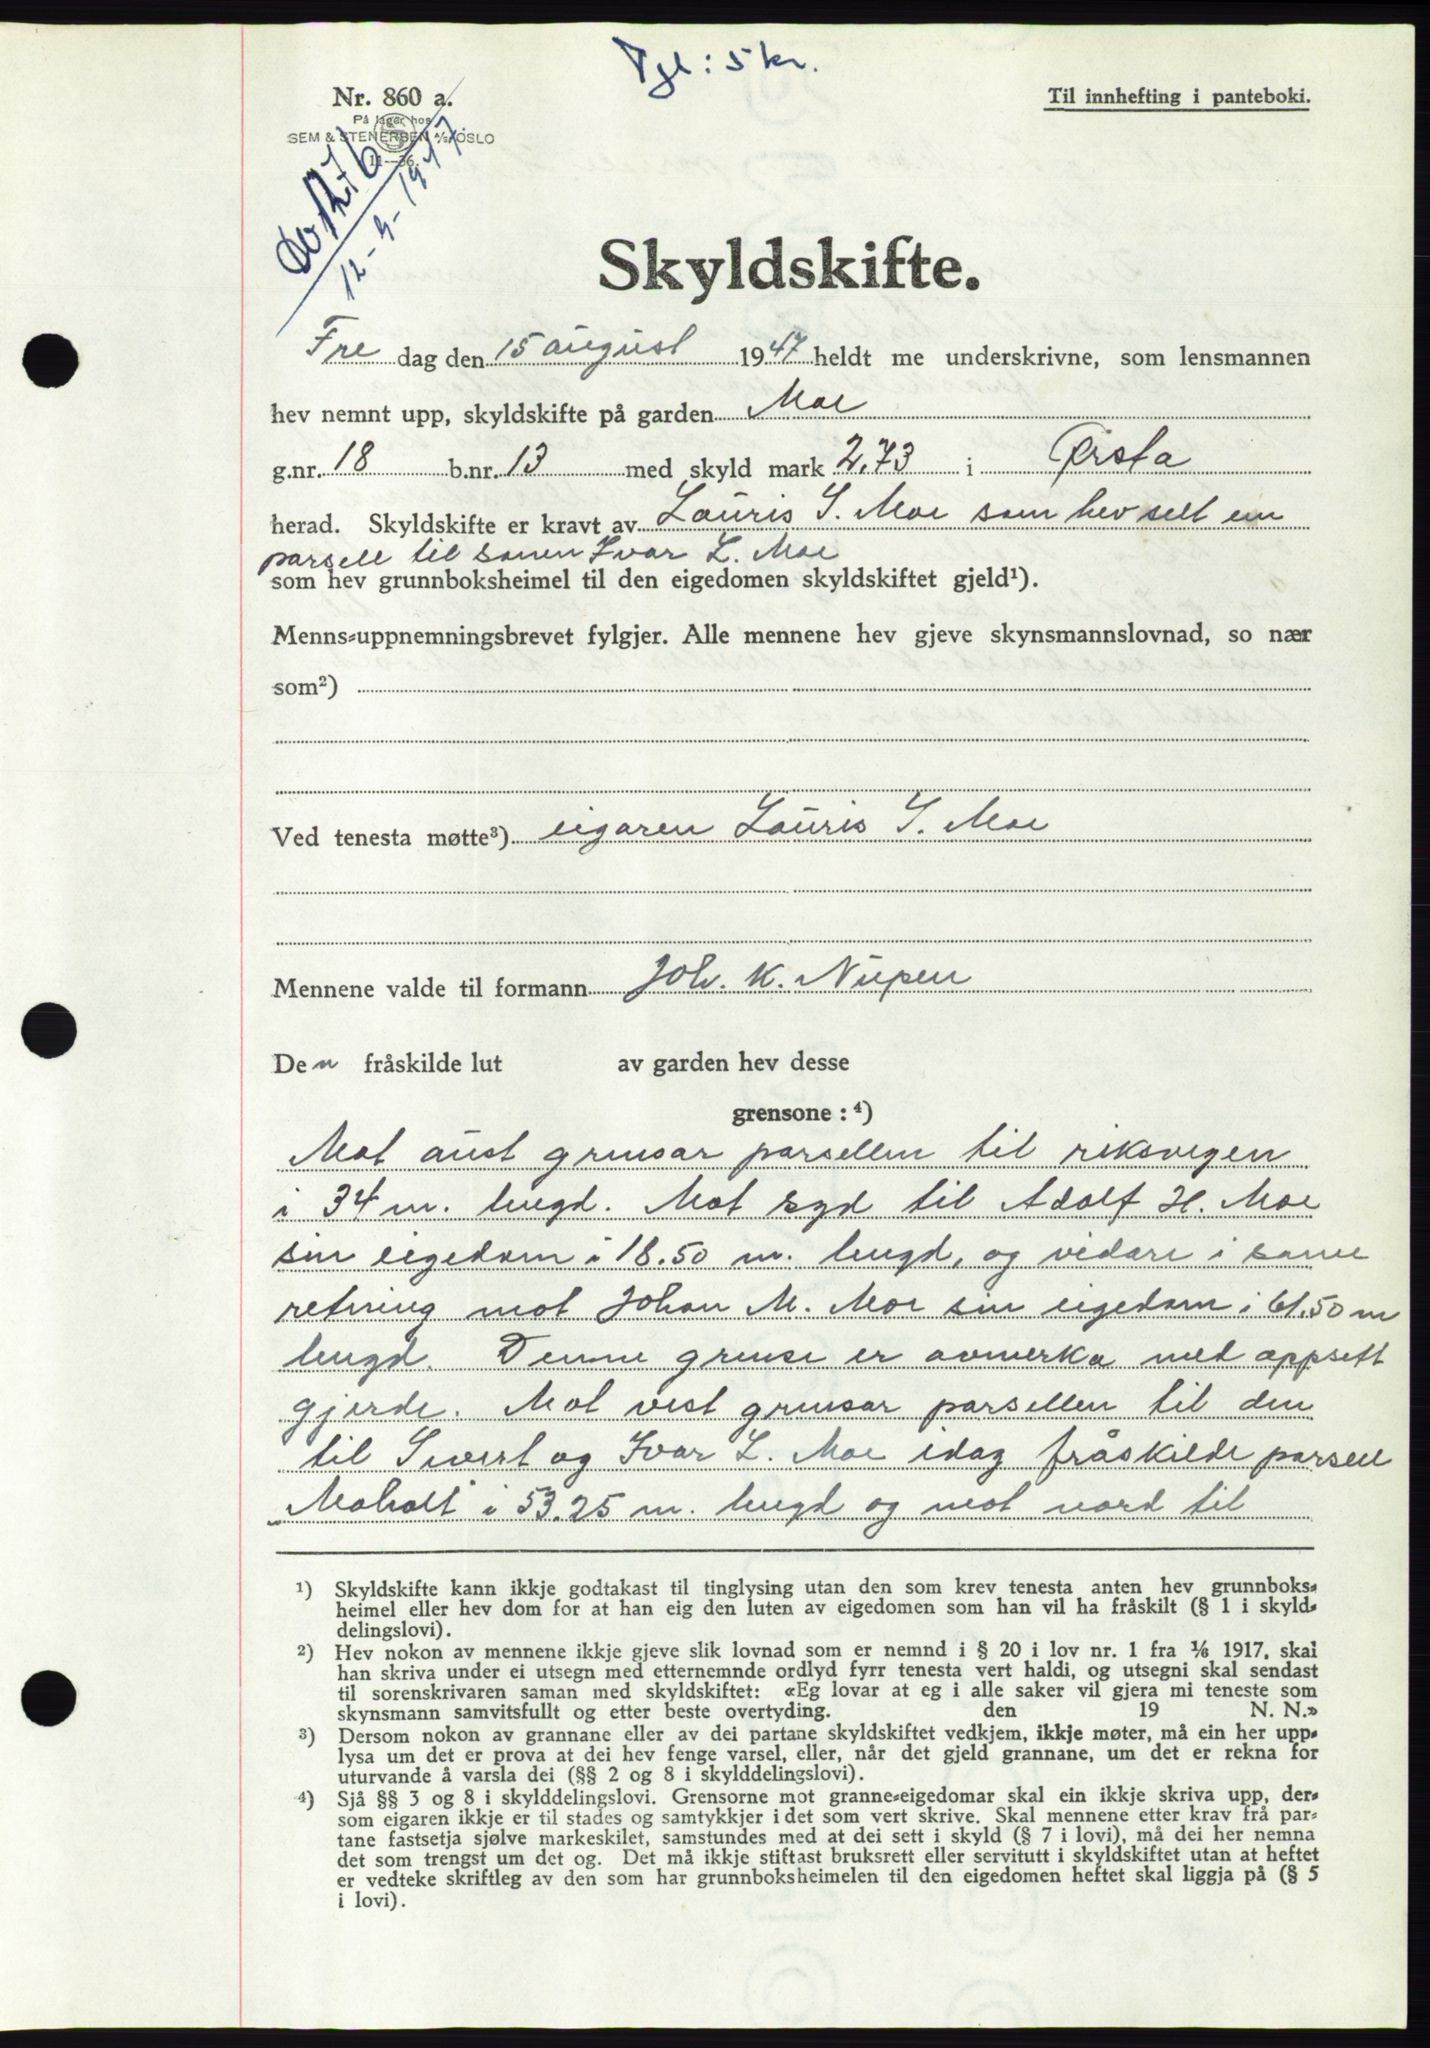 Tgl: 5 kr.
Nr. 860 a.
Til innhefting i panteboki.
På lager hos
SEM & STENERSEN A/S OSLO
11—36.
12-9-1947.
Skyldskifte.
Fre dag den 15 august 1947 heldt me underskrivne, som lensmannen
hev nemnt upp, skyldskifte på garden Moe
g.nr. 18 b.nr. 13 med skyld mark 2,73 i Ørsta
herad. Skyldskifte er kravt av Lauris S. Moe som hev selt ein
parsell til sonen Ivar L. Moe
som hev grunnboksheimel til den eigedomen skyldskiftet gjeld¹).
Menns-uppnemningsbrevet fylgjer. Alle mennene hev gjeve skynsmannslovnad, so nær
som²)
Ved tenesta møtte³) eigaren Lauris S. Moe
Mennene valde til formann Joh. K. Nupen
Den fråskilde lut av garden hev desse
grensone : ⁴)
Mot aust grensar parsellen til riksvegen
i 34 m. lengd. Mot syd til Adolf H. Moe
sin eigedom i 18.50 m. lengd, og vidare i same
retning mot Johan M. Moe sin eigedom i 61.50 m
lengd. Denne grense er avmerka med oppsett
gjerde. Mot vest grensar parsellen til den
til Sivert og Ivar L. Moe idag fråskilde parsell
„Moholt" i 53.25 m. lengd og mot nord til
¹) Skyldskifte kann ikkje godtakast til tinglysing utan den som krev tenesta anten hev grunnboks-
heimel eller hev dom for at han eig den luten av eigedomen som han vil ha fråskilt (§ 1 i skyld-
delingslovi).
²) Hev nokon av mennene ikkje gjeve slik lovnad som er nemnd i § 20 i lov nr. 1 fra 1/6 1917, skal
han skriva under ei utsegn med etternemnde ordlyd fyrr tenesta vert haldi, og utsegni skal sendast
til sorenskrivaren saman med skyldskiftet: «Eg lovar at eg i alle saker vil gjera mi teneste som
skynsmann samvitsfullt og etter beste overtyding. den 19 N. N.»
³) Dersom nokon av grannane eller av dei partane skyldskiftet vedkjem, ikkje møter, må ein her upp-
lysa um det er prova at dei hev fenge varsel, eller, når det gjeld grannane, um det er rekna for
uturvande å varsla dei (§§ 2 og 8 i skylddelingslovi).
⁴) Sjå §§ 3 og 8 i skylddelingslovi. Grensorne mot granne-eigedomar skal ein ikkje skriva upp, der-
som eigaren ikkje er til stades og samtykkjer i det som vert skrive. Skal mennene etter krav frå par-
tane fastsetja sjølve markeskilet, samstundes med at dei sett i skyld (§ 7 i lovi), må dei her nemna
det som trengst um det og. Det må ikkje stiftast bruksrett eller servitutt i skyldskiftet utan at heftet
er vedteke skriftleg av den som har grunnboksheimelen til den eigedomen heftet skal liggja på (§ 5
i lovi).